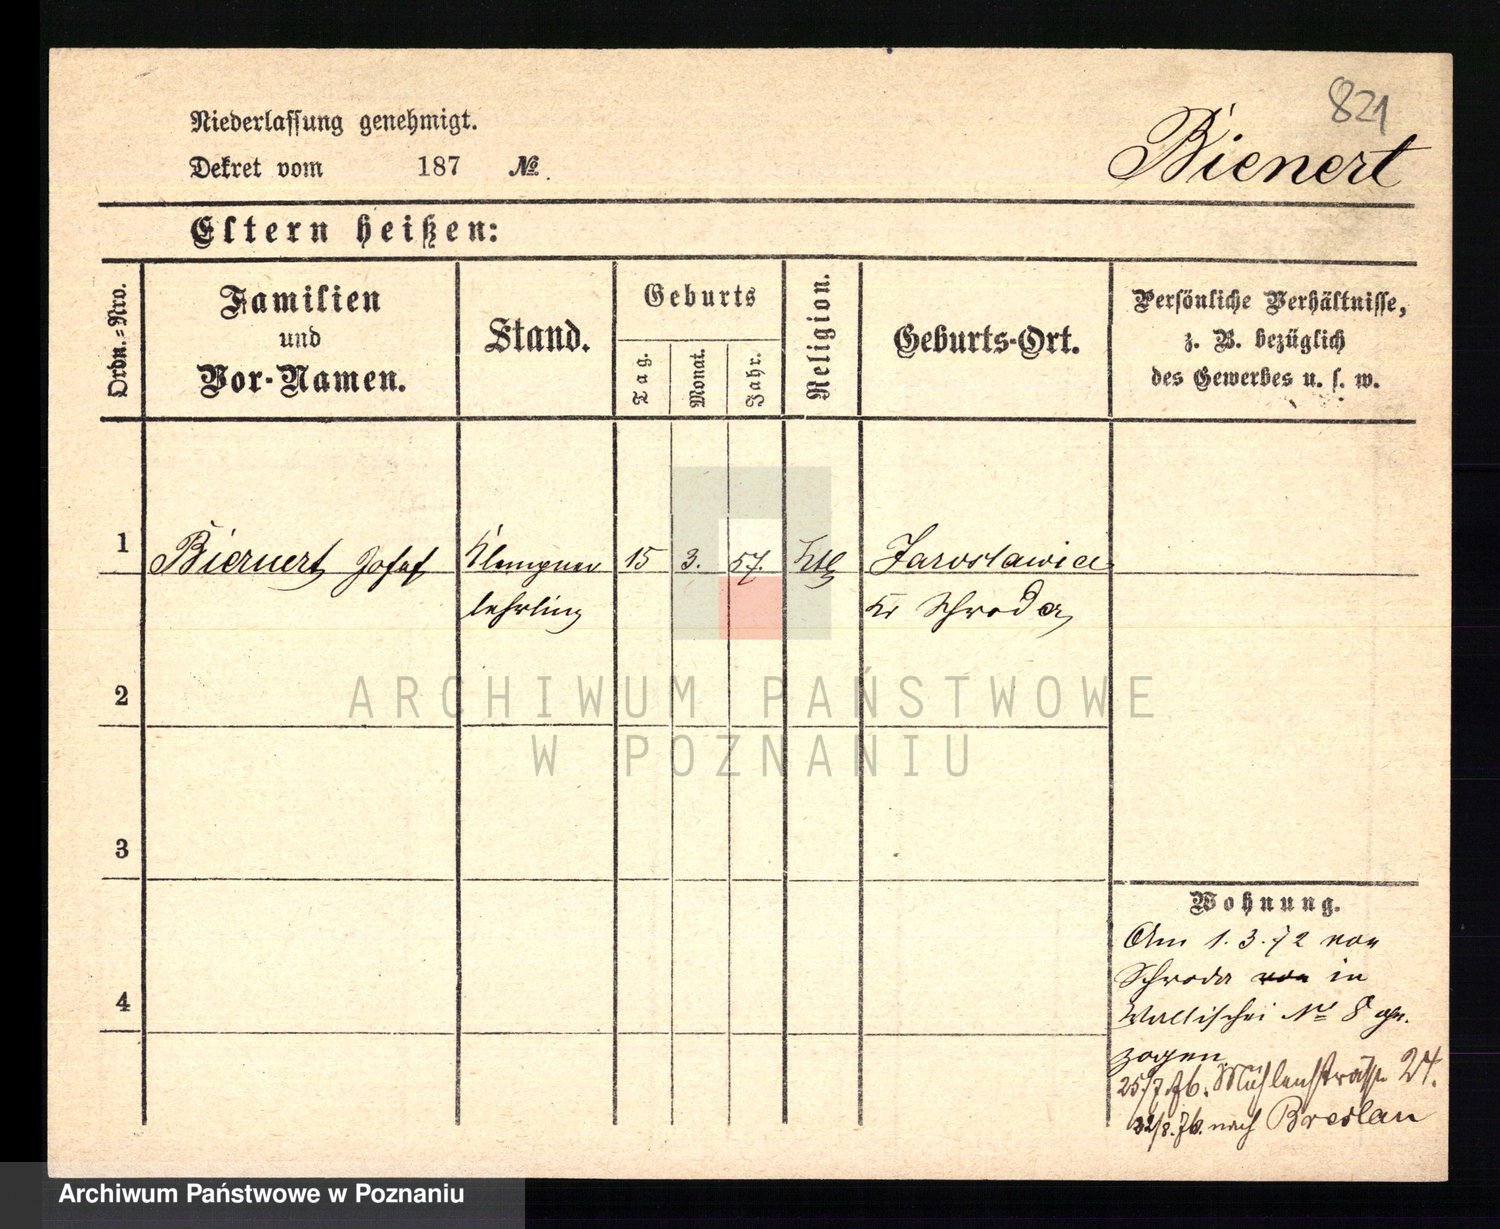 821
Niederlassung genehmigt.
Dekret vom 187 №.
Bienert
Eltern heißen:
Ordn.=Nro.
Familien
und
Vor-Namen.
Stand.
Geburts
Tag.
Monat.
Jahr.
Religion.
Geburts-Ort.
Persönliche Verhältnisse,
z. B. bezüglich
des Gewerbes u. s. w.
1
Bienert Josef
Klempner
lehrling
15
3.
57.
Ktl
Jarosławice
Kr Schroda
2
3
4
Wohnung.
Am 1.3.72 von
Schroda von in
Wallischei No 8 ge-
zogen
25/7.76. Mühlenstrasse 24.
22/8.76. nach Breslau
ARCHIWUM PAŃSTWOWE
W POZNANIU
Archiwum Państwowe w Poznaniu